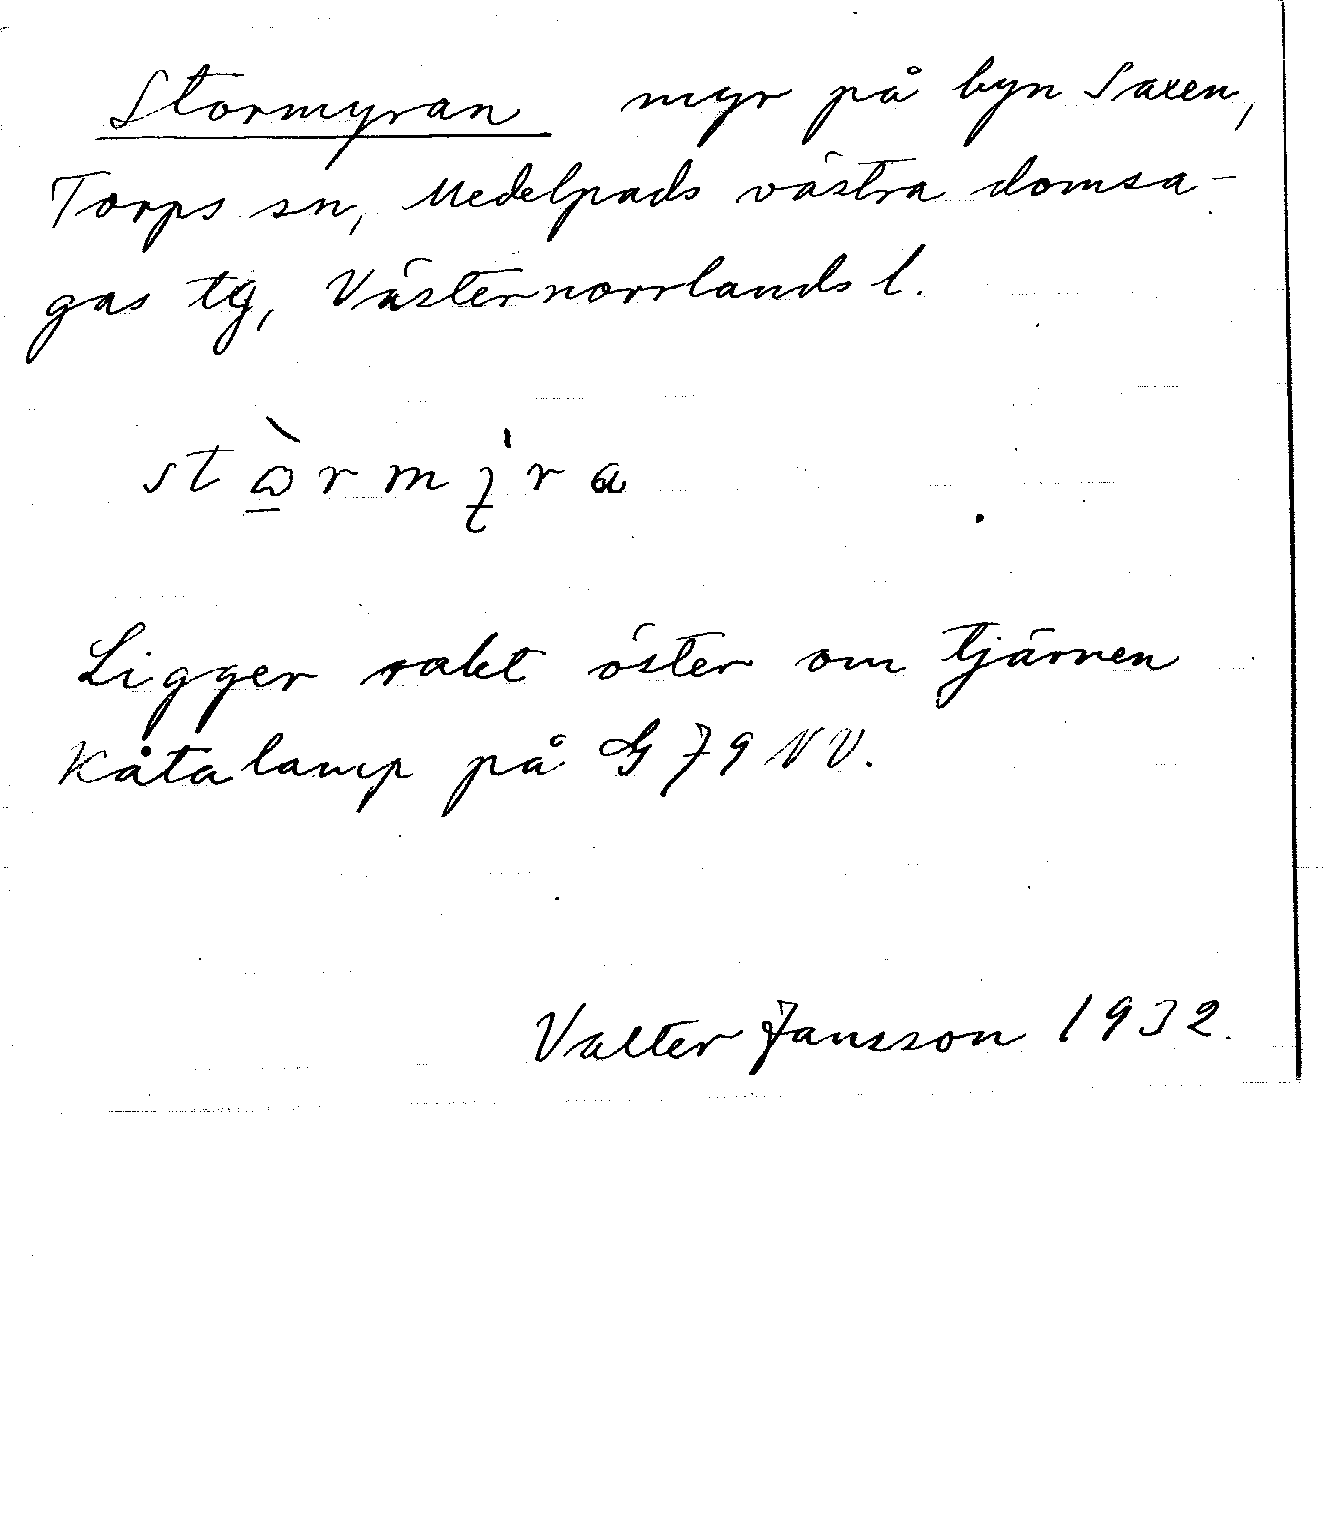 Stormyran myr på byn Saxen,
Torps sn, Medelpads västra domsa-
gas tg, Västernorrlands l.
Ligger rakt öster om tjärnen
Kåtalamp på G 79 NV.
Valter Jansson 1932.